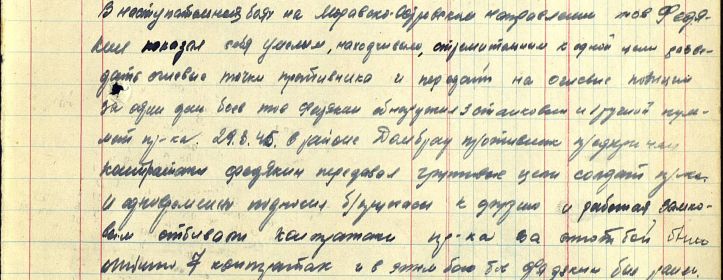 В наступательных боях на Моравско-Остравском направлении тов Федя-
кин показал себя умелым, находчивым, стремительным к одной цели разве-
дать огневые точки противника и передать на огневые позиции
за один день боев тов Федякин обнаружил 3 станковых и ручной пуле-
мет пр-ка. 29.3.45. в районе Домбрау противник предпринял
контратаки Федякин передавал групповые цели солдат пр-ка
и одновременно подносил б/припасы к орудию и работая замко-
вым отбивали контратаки пр-ка за этот бой было
отбито 7 контратак и в этом бою Федякин был ранен